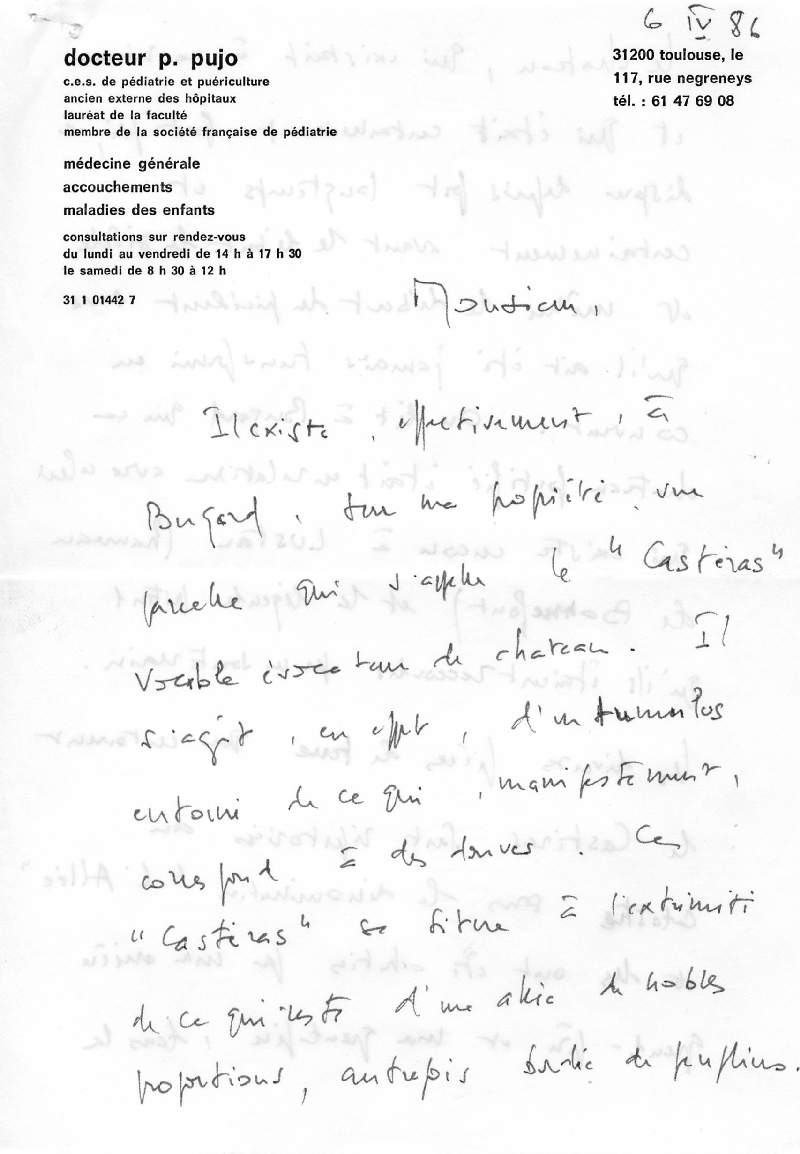 6 IV 86
docteur p. pujo
c.e.s. de pédiatrie et puériculture
ancien externe des hôpitaux
lauréat de la faculté
membre de la société française de pédiatrie
médecine générale
accouchements
maladies des enfants
consultations sur rendez-vous
du lundi au vendredi de 14 h à 17 h 30
le samedi de 8 h 30 à 12 h
31 1 01442 7
31200 toulouse, le
117, rue negreneys
tél. : 61 47 69 08
Monsieur,
Il existe, effectivement, à
Bugard, sur ma propriété, une
parcelle qui s'appelle le "Castéras"
Vocable évocateur de chateau. Il
s'agit, en effet, d'un tumulus
entouré de ce qui, manifestement,
correspond à des douves. Ce
"Castéras" se situe à l'extrémité
de ce qui reste d'une allée de nobles
proportions, autrefois bordée de peupliers.